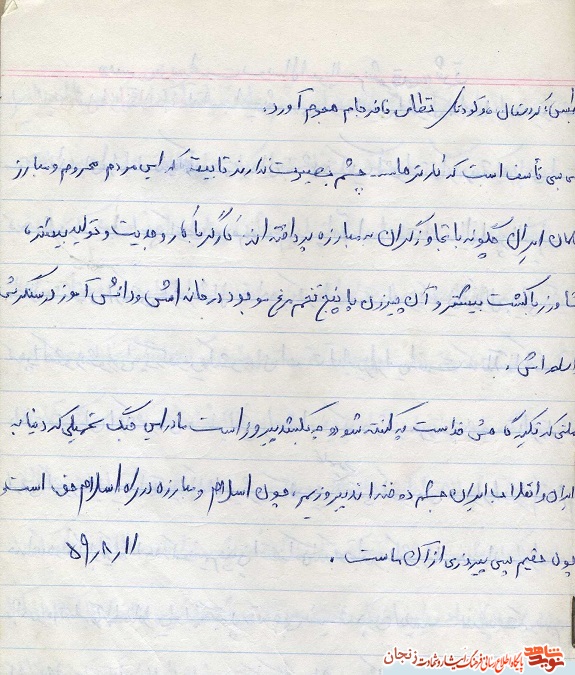 طبس؛ کردستان و کودتای نظامی نافرجام هجوم آورد.
بسی تأسف است که چشم بصیرت ندارند تا ببینند که این مردم محروم و مبارز
ایران چگونه با تجاوزگران به مبارزه پرداخته‌اند، کارگر با کار و جدیت و تولید بیشتر،
با کشت بیشتر و آن پیرزن با پنج تخم مرغ موجود در خانه‌اش و دانش آموز در سنگر
ملتی که تکیه گاهش خداست چه کشته شود و چه بکشد پیروز است ما در این جنگ تحمیلی که دنیا به
ایران و انقلاب ایران چشم دوخته‌اند پیروزیم، چون اسلام و مبارزه در راه اسلام حق است و
چون حقیم پس پیروزی از آن ماست.
۵۹٫۸٫۱۱
نوید شاهد
پایگاه اطلاع رسانی فرهنگ ایثار و شهادت زنجان